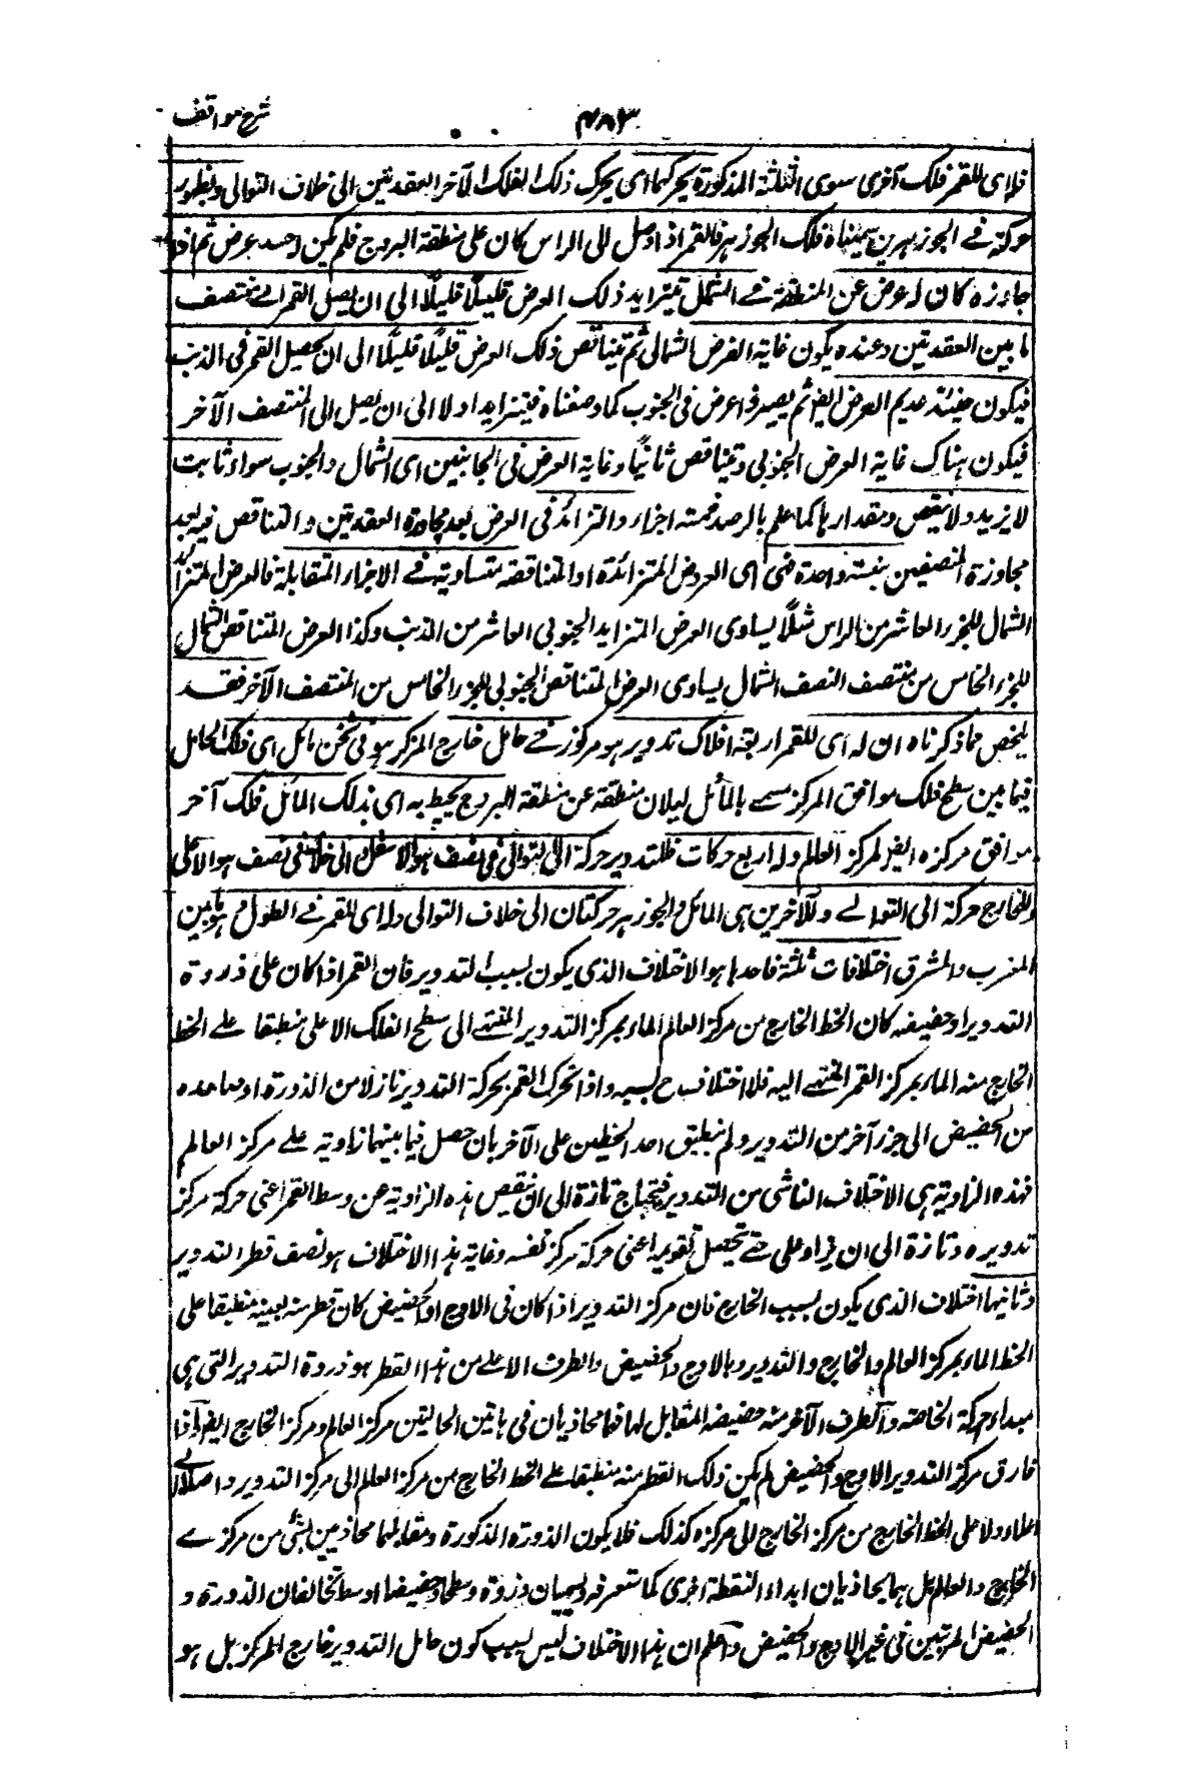 شرح مواقف
٤٨٣
فله اى للقمر فلك آخرى سوى الثلثة المذكورة يحركهما اى يحرك ذلك الفلك الآخر العقدتين الى خلاف التوالى ويظهر
حركته فے الجوزهرين سميناه فلك الجوزهر فالقمر اذا وصل الى الراس كان على منطقة البروج فلم يكن له حينئذ عرض ثم اذا
جاوزه كان له عرض عن المنطقة فے الشمال يتزايد ذلك العرض قليلًا قليلًا الى ان يصل القمر الے منتصف
ما بين العقدتين وعنده يكون غاية العرض الشمالى ثم يتناقص ذلك العرض قليلًا قليلًا الى ان يحصل القمر فى الذنب
فيكون حينئذ عديم العرض ايضا ثم يصير ذا عرض فى الجنوب كما وصفناه فيتزايد اولا الى ان يصل الى المنتصف الآخر
فيكون هناك غاية العرض الجنوبى ويتناقص ثانيًا وغاية العرض فى الجانبين اى الشمال والجنوب سواء ثابت
لا يزيد ولا ينقص ومقدارها كما علم بالرصد خمسة اجزاء والتزائد فى العرض بعد مجاوزة العقدتين والتناقص فيه بعد
مجاوزة المنصفين بنسبة واحدة فهى اى العروض المتزائدة او المتناقصة متساوية فے الاجزاء المتقابلة فالعرض المتزائد
الشمالى للجزء العاشر من الراس مثلًا يساوى العرض المتزايد الجنوبى العاشر من الذنب وكذا العرض المتناقص الشمالى
للجزء الخامس من منتصف النصف الشمالى يساوى العرض المتناقص الجنوبى للجزء الخامس من المنتصف الآخر فقد
تلخص مما ذكرناه ان له اى للقمر اربعة افلاك تدوير هو مركوز فے حامل خارج المركز هو فى ثخن مائل اى فلك الحامل
فيما بين سطحى فلك موافق المركز مسمے بالمائل لميلان منطقته عن منطقة البروج يحيط به اى بذلك المائل فلك آخر
موافق مركزه ايضا لمركز العالم وله اربع حركات فللتدوير حركة الى التوالى فى نصف هو الاسفل والى خلافه فى نصف هو الاعلى
وللخارج حركة الى التوالے وللآخرين هى المائل والجوزهر حركتان الى خلاف التوالى وله اى للقمر فے الطول وهو ما بين
المغرب والمشرق اختلافات ثلثة فاحدها هو الاختلاف الذى يكون بسبب التدوير فان القمر اذا كان على ذروة
التدوير او حضيضه كان الخط الخارج من مركز العالم المار بمركز التدوير المنتهے الى سطح الفلك الاعلى منطبقا على الخط
الخارج منه المار بمركز القمر المنتهے اليه فلا اختلاف ح بسببه واذا تحرك القمر بحركة التدوير نازلا من الذروة او صاعدا
من الحضيض الى جزء آخر من التدوير ولم ينطبق احد الخطين على الآخر بان حصل فيما بينهما زاوية علے مركز العالم
فهذه الزاوية هى الاختلاف الناشى من التدوير فيحتاج تارة الى ان ينقص هذه الزاوية عن وسط القمر اعنى حركة مركز
تدويره وتارة الى ان يزاد على حتے يحصل تقويمه اعنى حركة مركز نفسه وغاية هذا الاختلاف هو نصف قطر التدوير
وثانيها اختلاف الذى يكون بسبب الخارج فان مركز التدوير اذا كان فى الاوج او الحضيض كان قطر منه بعينه منطبقا على
الخط المار بمركز العالم والخارج والتدوير وبالاوج والحضيض والطرف الاعلے من هذا القطر هو ذروة التدوير التى هى
مبداء حركة الخاصة والطرف الآخر منه حضيضه المقابل لها فهما محاذيان فى هاتين الحالتين مركز العالم ومركز الخارج ايضا واذا
فارق مركز التدوير الاوج والحضيض لم يكن ذلك القطر منه منطبقا علے الخط الخارج من مركز العالم الى مركز التدوير واصلا الے
اعلاه ولا على الخط الخارج من مركز الخارج الى مركزه كذلك فلا يكون الذروة المذكورة ومقابلها محاذيين لشئ من مركزے
الخارج والعالم بل هما يحاذيان ابدا النقطة اخرى كما ستعرفه ويسميان ذروة وسطے وحضيضا اوسط يخالفان الذروة و
الحضيض المرئيين فى غير الاوج والحضيض واعلم ان هذا الاختلاف ليس بسبب كون حامل التدوير خارج المركز بل هو